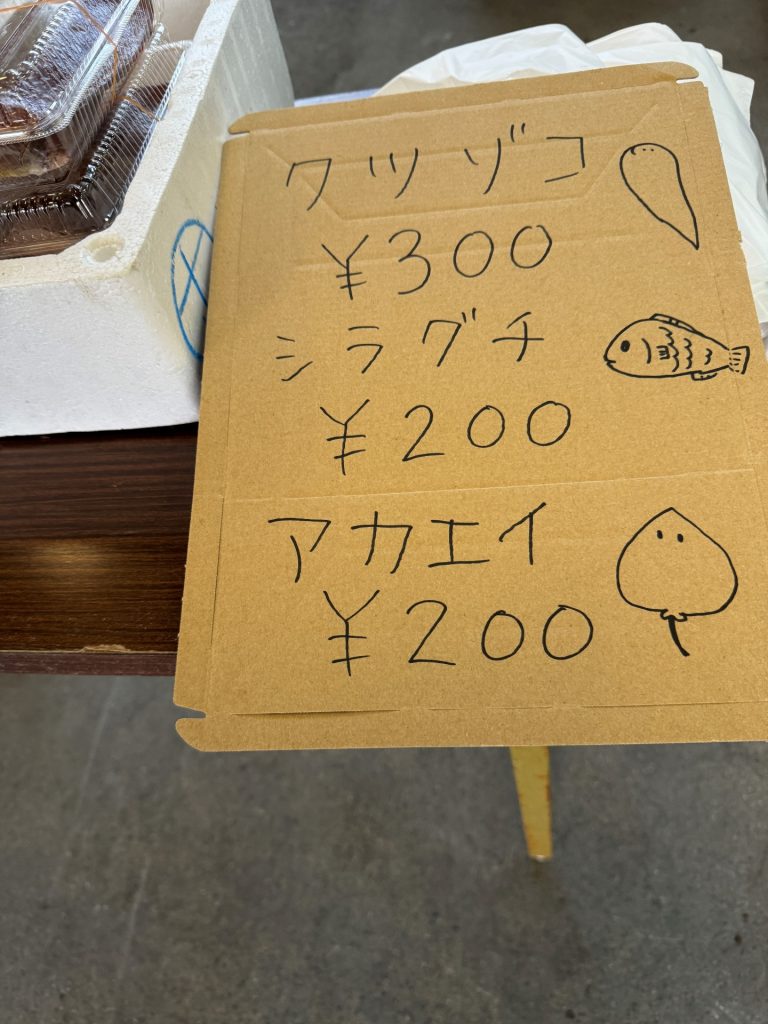 クツゾコ
¥300
シラグチ
¥200
アカエイ
¥200